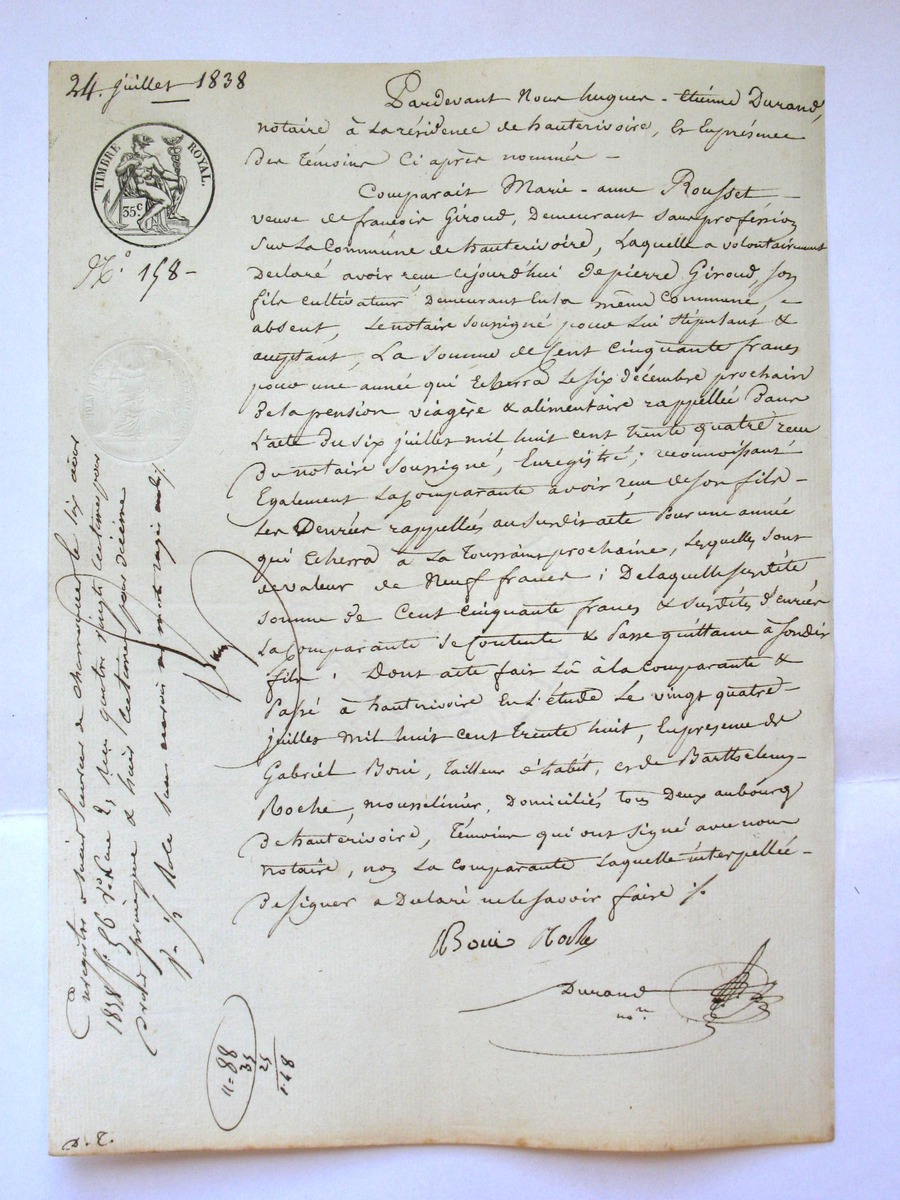 24. juillet 1838
TIMBRE ROYAL.
35 c
N.o 158 -
Pardevant Nous hugues - Etiénne Durand,
notaire à La résidence de hauterivoire, Et En présence
Des témoins Ci après nommés -
Comparait Marie - anne Rousset
veuve de françois Giroud, Demeurant sans proféssion
Sur La Commune de hauterivoire, Laquelle a volontairement
Déclaré avoir reçu cejourd'hui de pierre Giroud, son
fils cultivateur demeurant En la même Commune, -
absent, Le notaire soussigné pour Lui stipulant &
acceptant, La somme de Cent cinquante francs
pour une année qui Echerra Le six décembre prochain
De la pension viagère & alimentaire rappellée Dans
L'acte Du six juillet mil huit cent trente quatre reçu
Du notaire soussigné, Enregistré; reconnoissant
Egalement La Comparante avoir reçu de son fils -
Les Denrées rappellées au susdit acte pour une année
qui Echerra à La Toussaint prochaine, Lesquelles sont
de valeur de Neuf francs; De laquelle susdite
somme de Cent Cinquante francs & susdites d'enrées
La Comparante se Contente & passe quittance à son dit
fils. Dont acte fait Lû à la Comparante &
Passé à hauterivoire En L'étude Le vingt quatre -
juillet mil huit cent Trente huit, En présence de
Gabriél Boui, Tailleur d'habit, et de Barthelemy
Roche, mousselinier, Domiciliés tous Deux au bourg
De hauterivoire, Témoins qui ont signé avec nous
notaire, non La Comparante Laquelle interpellée -
De signer a Déclaré ne le savoir faire ./.
Boui Roche
Durand
no.re
Enregistré à Saint Laurent de chamousset le six août
1838 f.o 56 r.o Reçu quatre vingt centimes pour
droit principal & huit centimes pour dixième
88 = 11
52
D. T.